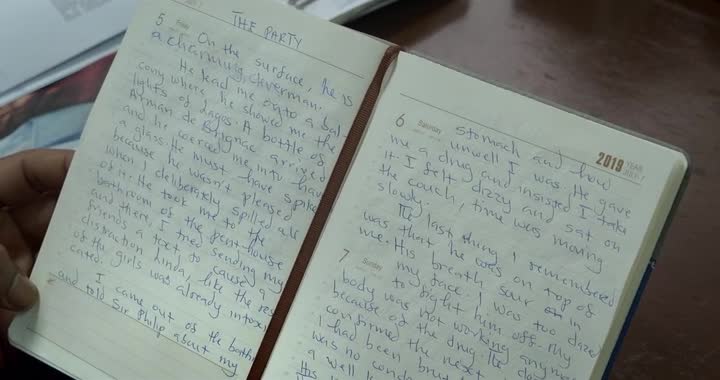 JULY
5 Friday THE PARTY
On the surface, he is
a charming, clever man.
He lead me onto a bal-
cony where he showed me the
lights of Lagos. A bottle of
Arman de Brignac arrived
and he coerced me into having
a glass. He must have spiked
because he wasn't pleased
when I deliberately spilled all
of it. He took me to the
bathroom of the pent-house
and there, I tried sending my
friends a text to cause a
distration kinda, like the rest
of the girls was already intoxi
cated.
I came out of the bathr
and told Sir Philip about my
2019 YEAR
JULY
6 Saturday stomach and how
unwell I was. He gave
me a drug and insisted I take
it. I felt dizzy and sat on
the couch, time was moving
slowly.
The last thing I remembered
was that he was on top of
me. His breath sour in
7 Sunday my face. I was too dazed
to fight him off. My
body was not working anymore
because of the drug. The doct
confirmed the next
I had been bru
was no cond
a well
His